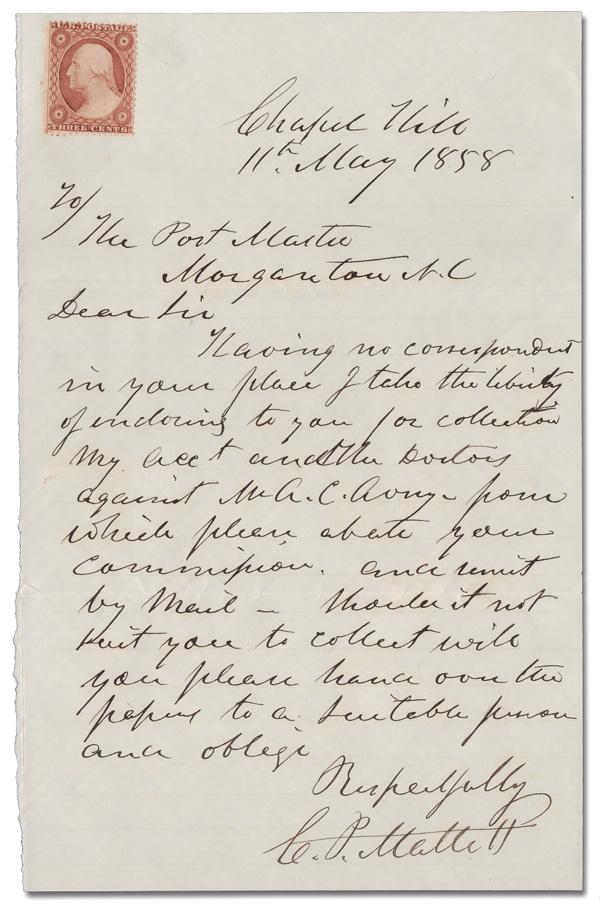 U.S. POSTAGE
THREE CENTS
Chapel Hill
11th May 1858
To/
The Post Master
Morganton N.C
Dear Sir
Having no correspondent
in your place I take the liberty
of enclosing to you for collection
My acct and the Doctors
against Mr A. C. Avery - from
which please abate your
Commission. and remit
by Mail - Should it not
suit you to collect will
you please hand over the
papers to a suitable person
and oblige
Respectfully
C. P. Mallett